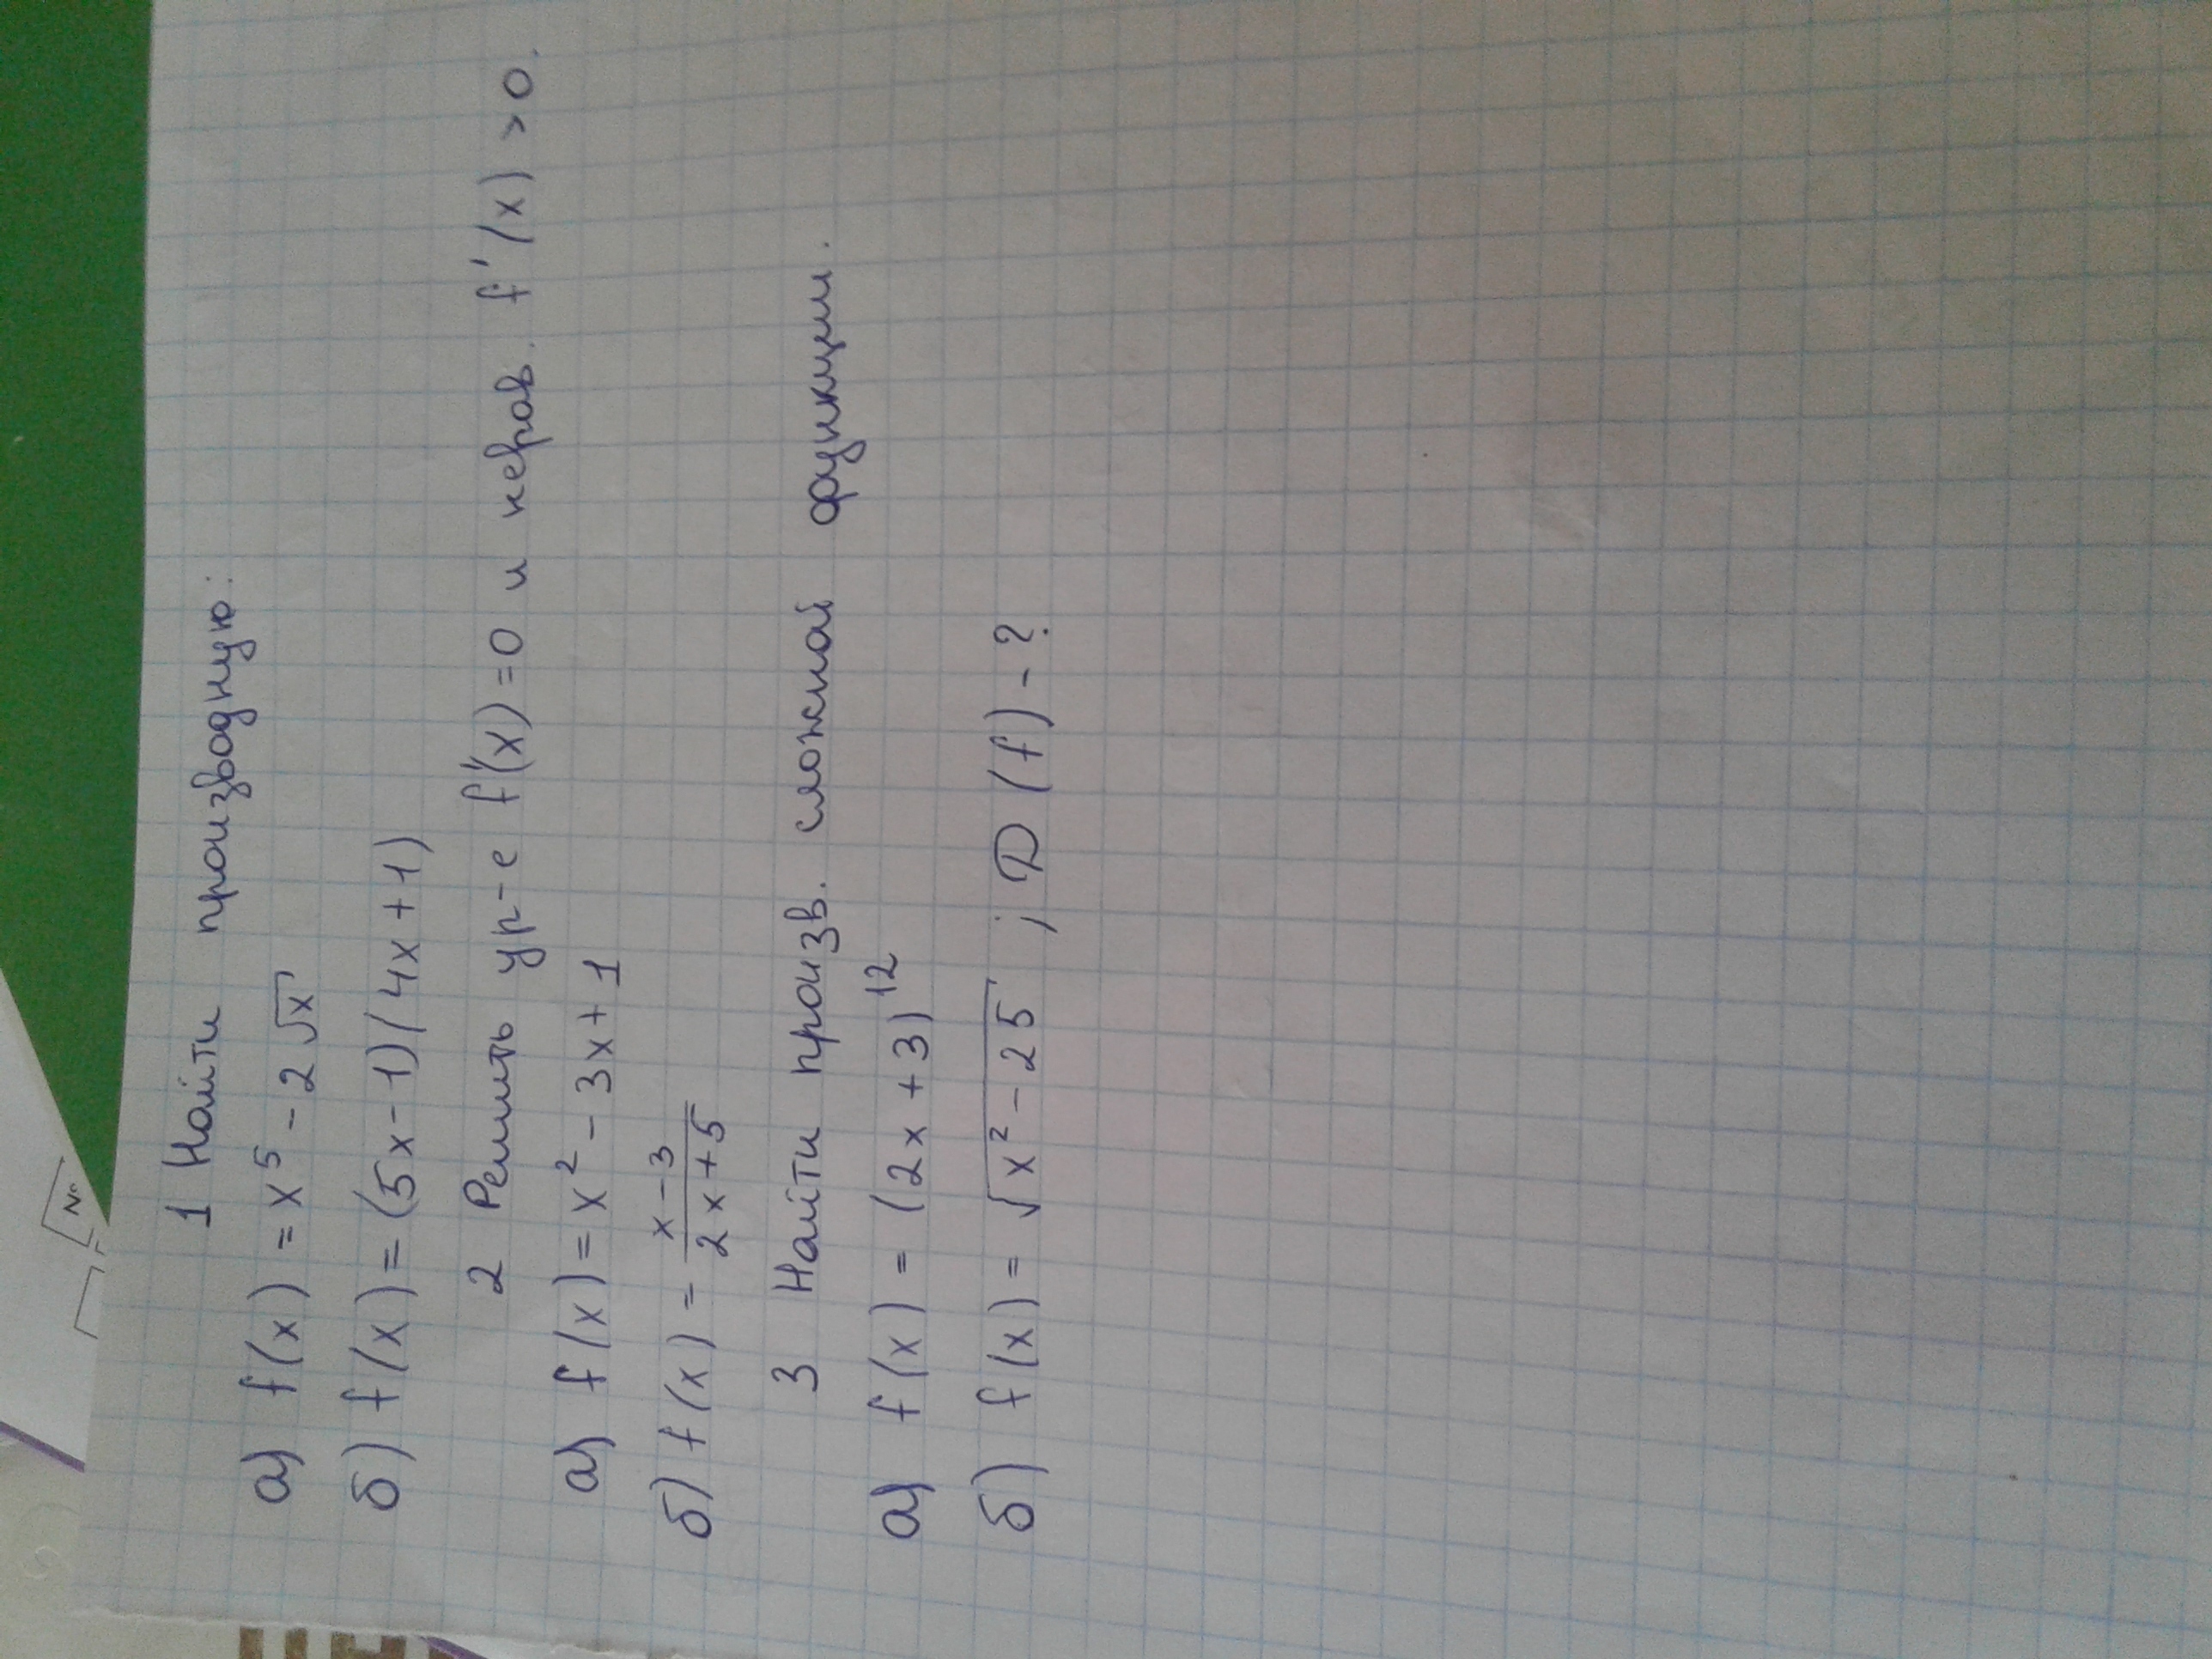 1 Найти производную:
а) f(x) = x⁵ - 2√x
б) f(x) = (5x-1)(4x+1)
2 Решить ур-е f'(x)=0 и нерав. f'(x) >0.
а) f(x) = x² - 3x+1
б) f(x) = (x-3)/(2x+5)
3 Найти произв. сложной функции.
а) f(x) = (2x+3)¹²
б) f(x) = √(x²-25) ; D(f) - ?